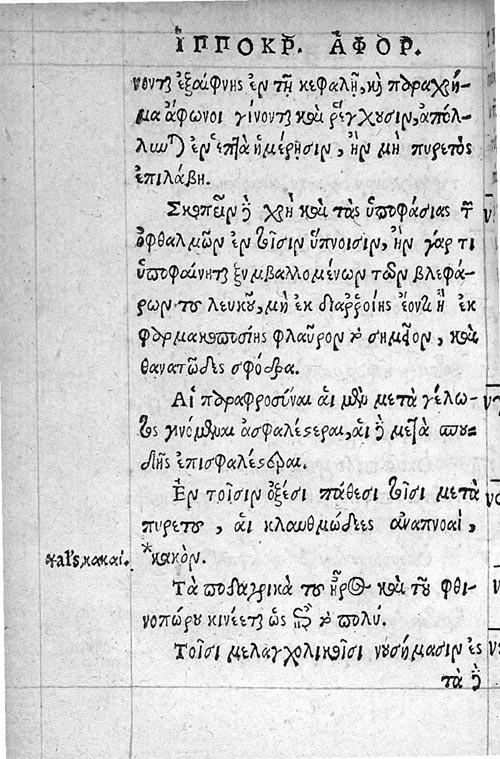 ἹΠΠΟΚΡ. ἈΦΟΡ.
νονται ἐξαίφνης ἐν τῇ κεφαλῇ, καὶ παραχρῆ-
μα ἄφωνοι γίνονται καὶ ῥέγχουσιν, ἀπόλ-
λυνται ἐν ἑπτὰ ἡμέρῃσιν, ἢν μὴ πυρετὸς
ἐπιλάβῃ.
Σκοπεῖν δὲ χρὴ καὶ τὰς ὑποφάσιας τῶν
ὀφθαλμῶν ἐν τοῖσιν ὕπνοισιν, ἢν γάρ τι
ὑποφαίνηται ξυμβαλλομένων τῶν βλεφά-
ρων τοῦ λευκοῦ, μὴ ἐκ διαῤῥοίης ἐόντι ἢ ἐκ
φαρμακοποσίης φλαῦρον τὸ σημεῖον, καὶ
θανατῶδες σφόδρα.
Αἱ παραφροσύναι αἱ μὲν μετὰ γέλω-
τος γινόμεναι ἀσφαλέστεραι, αἱ δὲ μετὰ σπου-
δῆς ἐπισφαλέστεραι.
Ἐν τοῖσιν ὀξέσι πάθεσι τοῖσι μετὰ
πυρετοῦ, αἱ κλαυθμώδεες ἀναπνοαὶ,
*κακὸν.
ἄλλως, κακαί.
Τὰ ποδαγρικὰ τοῦ ἦρος καὶ τοῦ φθι-
νοπώρου κινέεται ὡς ἐπὶ τὸ πολύ.
Τοῖσι μελαγχολικοῖσι νουσήμασιν ἐς
τὰ δὲ